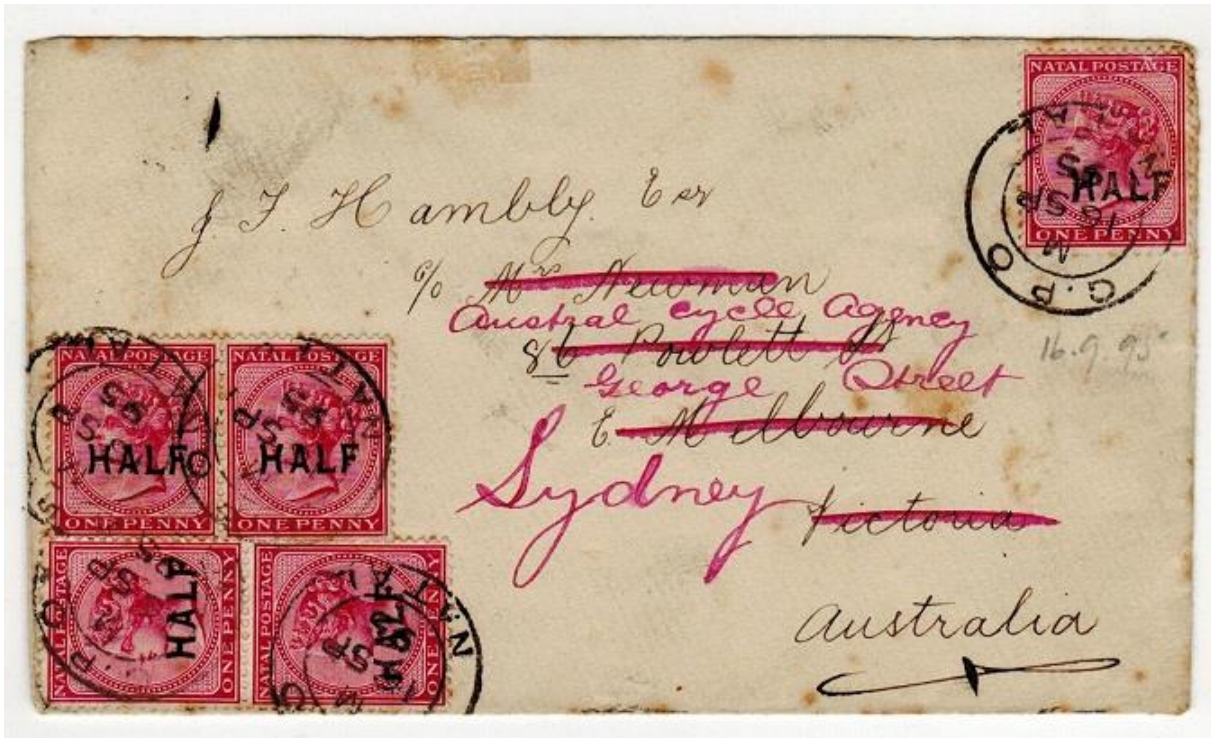 NATAL POSTAGE
HALF
ONE PENNY
G.P.O
NATAL
16 SP
95
J. F. Hambly. Esr
c/o Mrs Newman
Austral Cycle Agency
86 Powlett St
George Street
E. Melbourne
Sydney
Victoria
Australia
16.9.95
NATAL POSTAGE
HALF
ONE PENNY
NATAL POSTAGE
HALF
ONE PENNY
NATAL POSTAGE
HALF
ONE PENNY
NATAL POSTAGE
HALF
ONE PENNY
NATAL